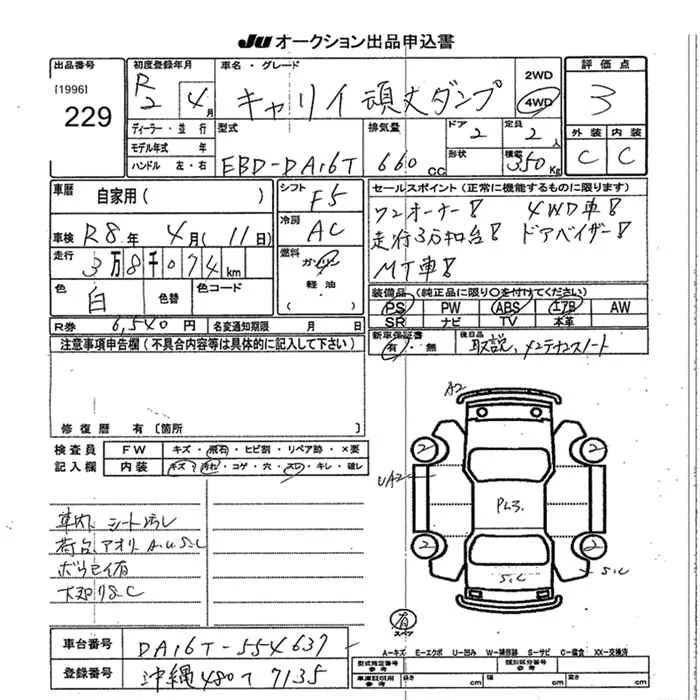 JU オークション出品申込書
出品番号
[1996]
229
初度登録年月
R2 4月
車名・グレード
キャリイ 頑丈ダンプ
2WD
4WD
評価点
3
外装 内装
C C
ディーラー・並行
モデル年式 年
ハンドル 左・右
型式
EBD-DA16T
排気量
660 CC
ドア
2
定員
2人
形状
積載
350 Kg
車歴
自家用( )
車検 R8年 4月(11日)
走行 3万8千074km
色 白 色替 色コード
シフト
F5
冷房
AC
燃料
ガソリン
軽油
( )
セールスポイント(正常に機能するものに限ります)
ワンオーナー! 4WD車!
走行3万km台! ドアバイザー!
MT車!
装備品(純正品に限り○を付けてください)
PS PW ABS エアB AW
SR ナビ TV 本革
新車保証書
有・無
後日品
取説、メンテナンスノート
R券 6,540円 名変通知期限 月 日
注意事項申告欄(不具合内容等は具体的に記入して下さい)
修復歴 有〔箇所
検査員
記入欄
FW キズ・飛石・ヒビ割・リペア跡・×要
内装 キズ・汚れ・コゲ・穴・スレ・キレ・破レ
車内、シート汚レ
荷台、アオリ A.U.S.C
下廻りS.C
A2
2 2
UA2
PL3.
2 2
S.C
S.C
有
スペア
A-キズ E-エクボ U-凹み W-補修跡 S-サビ C-腐食 XX-交換済
車台番号 DA16T-554637
登録番号 沖縄480て7135
型式指定番号
参考
類別区分番号
参考
車庫証明用
参考
長さ cm 幅 cm 高さ cm